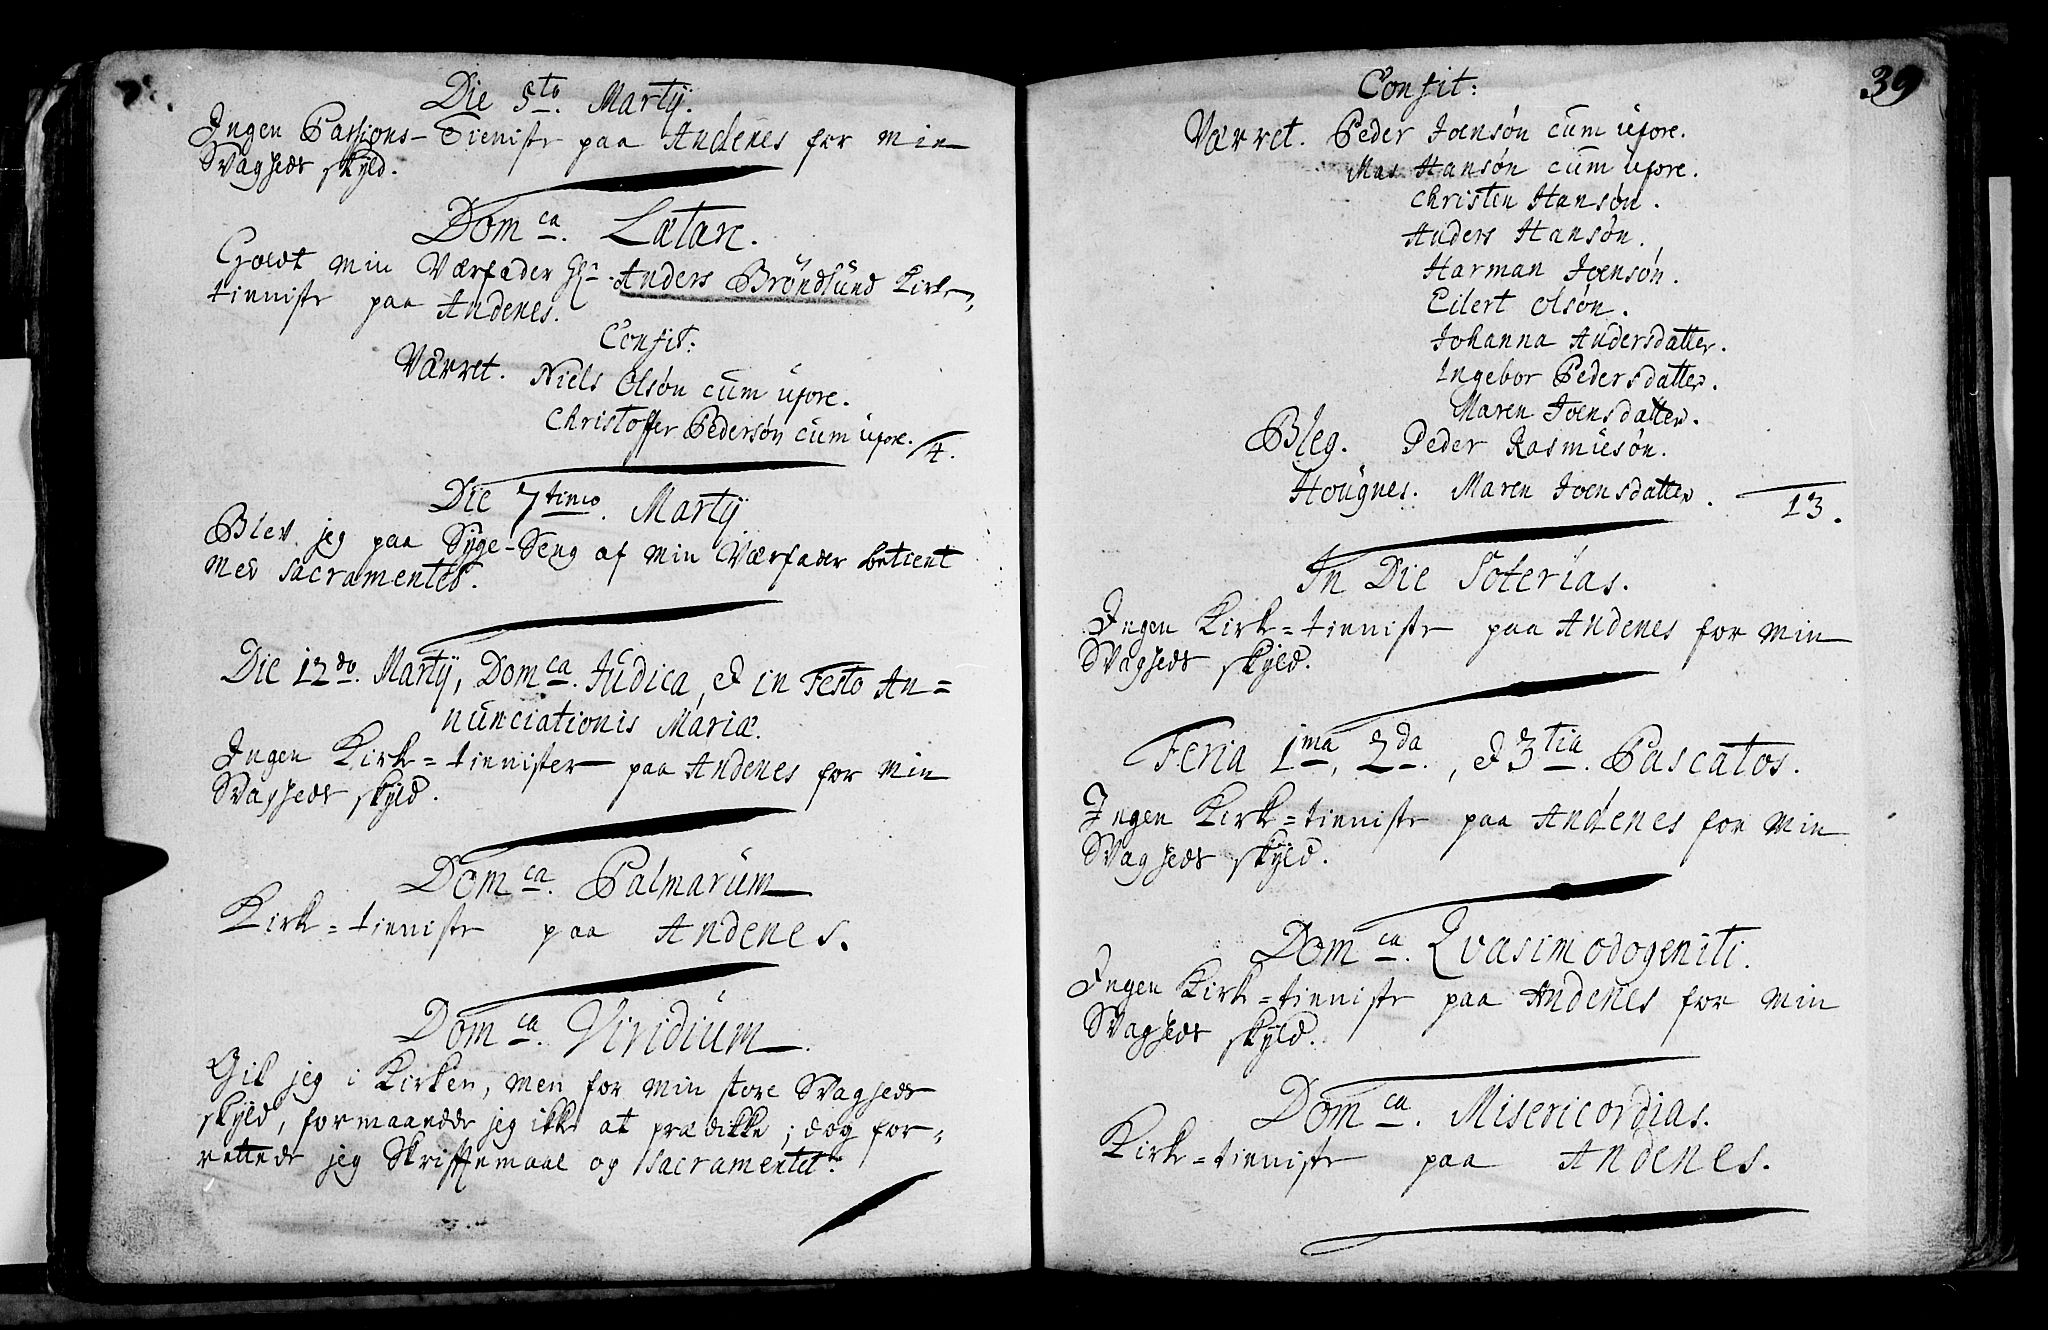 Die 5to. Martÿ.
Ingen Passions-Tieniste paa Andenes for min
Svagheds skyld.
Domca. Lætare.
Holdt min Værfader Hr. Anders Bröndlund Kirke-
tieniste paa Andenes.
Confit:
Værret. Niels Olsøn cum uxore.
Christoffer Pedersøn cum uxore. 4.
Die 7timo. Martÿ.
Blev jeg paa Syge-Seng af min Værfader betient
med sacramentet.
Die 12do. Martÿ, Domca. Judica, & in Festo An=
nunciationis Mariæ.
Ingen Kirke=tienister paa Andenes for min
Svagheds skyld.
Domca. Palmarum
Kirke=tieniste paa Andenes.
Domca. Viridium.
Gik jeg i Kirken, men for min store Svagheds
skyld, formaaede jeg ikke at prædikke; dog for-
rettede jeg Skriftemaal og sacramentet.
39
Confit:
Værret. Peder Joensøn cum uxore.
Mas Hansøn cum uxore.
Christen Hansøn.
Anders Hansøn.
Harman Joensøn.
Eilert Olsøn.
Johanna Andersdatter.
Ingebor Pedersdatter.
Maren Joensdatter.
Bleg. Peder Rasmusøn.
Hougnes. Maren Joensdatter. 13.
In Die Soterias.
Ingen Kirke=tieniste paa Andenes for min
Svagheds skyld.
Feria 1ma, 2da., & 3tia. Pascatos.
Ingen Kirke=tieniste paa Andenes for min
Svagheds skyld.
Domca. Qvasimodogeniti.
Ingen Kirke=tieniste paa Andenes for min
Svagheds skyld.
Domca. Misericordias.
Kirke=tieniste paa Andenes.